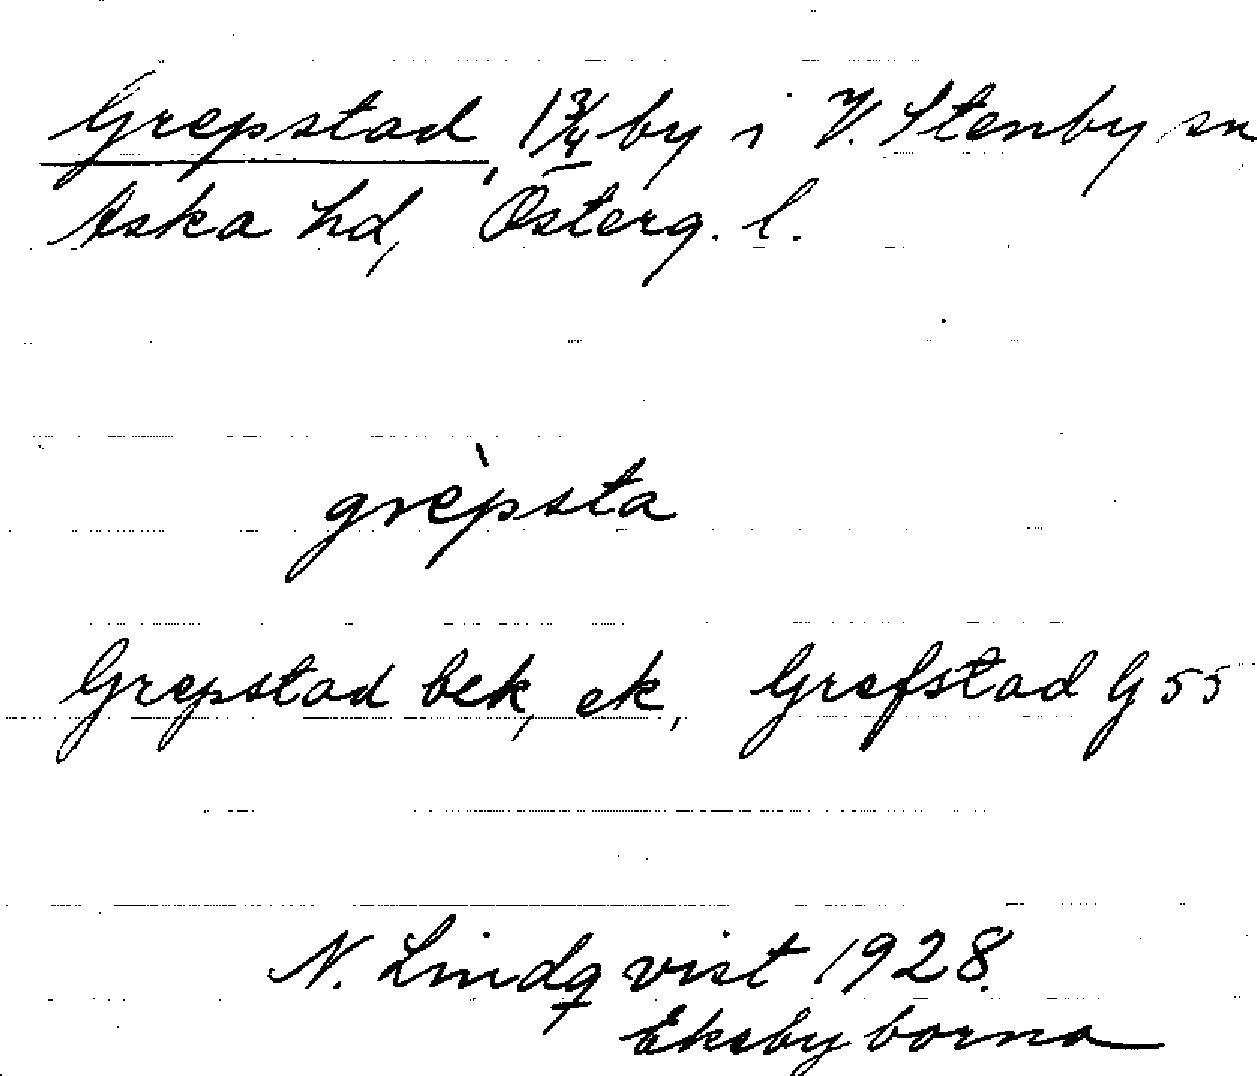 Grepstad, 1 3/4 by i V. Stenby sn
Aska hd, Österg. l.
grèpsta
Grepstad bek, ek, Grefstad G 55
N. Lindqvist 1928.
Eksbyborna